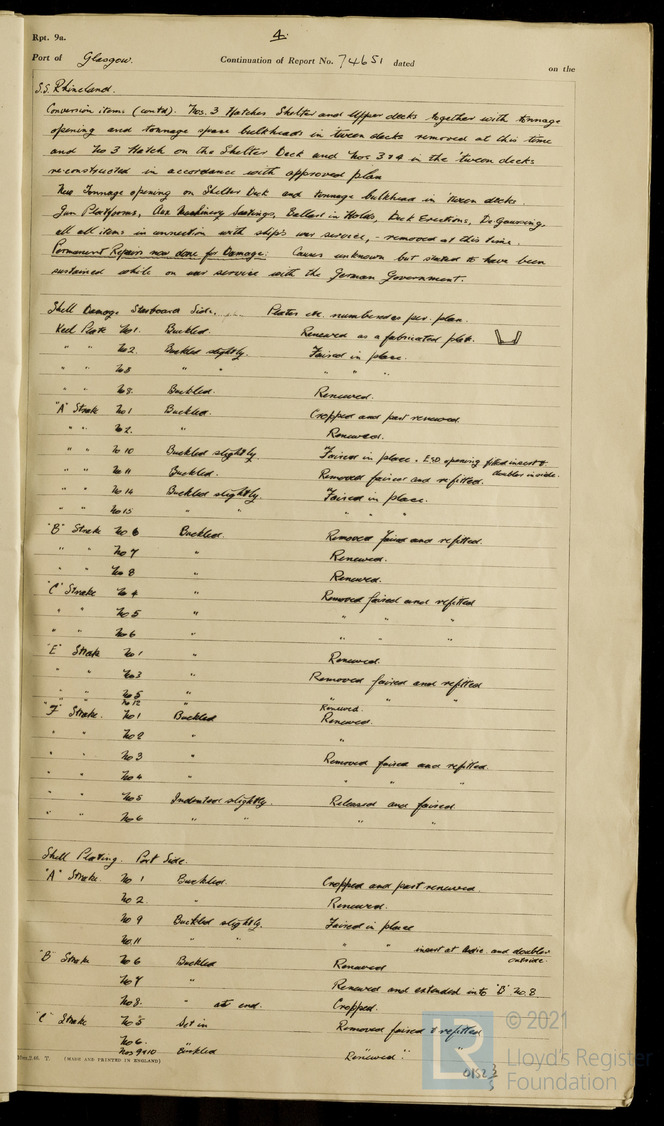 Rpt. 9a.
4.
Port of Glasgow. Continuation of Report No. 74651 dated on the
S.S. Rhineland.
Conversion items (contd). Nos. 3 Hatches Shelter and Upper decks together with tonnage
opening and tonnage space bulkheads in 'tween decks removed at this time
and No 3 Hatch on the Shelter Deck and Nos 3 & 4 in the 'tween decks
re-constructed in accordance with approved plan
New Tonnage opening on Shelter Deck and tonnage bulkhead in 'tween decks.
Gun Platforms, Aux Machinery Seatings, Ballast in Holds, Deck Erections, De-Gaussing,
all items in connection with ship's war service, - removed at this time.
Permanent Repairs now done for Damage: Causes unknown but stated to have been
sustained while on war service with the German Government.
Shell Damage Starboard Side. Plates etc. numbered as per plan.
Keel Plate No 1. Buckled. Renewed as a fabricated plate.
" " No 2. Buckled slightly. Faired in place.
" " No 8 " " " " "
" " No 9. Buckled. Renewed.
"A" Strake No 1 Buckled. Cropped and part renewed.
" " No 2. " Renewed.
" " No 10 Buckled slightly. Faired in place. E.S.D opening fitted insert & doubler inside.
" " No 11 Buckled. Removed faired and refitted.
" " No 14 Buckled slightly. Faired in place.
" " No 15 " " " " "
"B" Strake No 6 Buckled. Removed faired and refitted.
" " No 7 " Renewed.
" " No 8 " Renewed.
"C" Strake No 4 " Removed faired and refitted
" " No 5 " " " "
" " No 6 " " " "
"E" Strake No 1 " Renewed.
" " No 3 " Removed faired and refitted
" " No 5 " " " "
No 12 " Renewed.
"F" Strake. No 1 Buckled Renewed.
" " No 2 " "
" " No 3 " Removed faired and refitted.
" " No 4 " " " "
" " No 5 Indented slightly. Released and faired
" " No 6 " " " "
Shell Plating. Port Side.
"A" Strake. No 1 Buckled. Cropped and part renewed.
No 2 " Renewed.
No 9 Buckled slightly. Faired in place
No. 11 " " " " insert at and doubler outside.
"B" Strake No 6 Buckled Renewed
No 7 " Renewed and extended into "B" No. 8
No 8. " at end. Cropped.
"C" Strake No 5 Set in Removed faired & refitted
No 6. " "
Nos 9 & 10 Buckled Renewed
T. (MADE AND PRINTED IN ENGLAND)
© 2021
LR
Lloyd's Register
Foundation